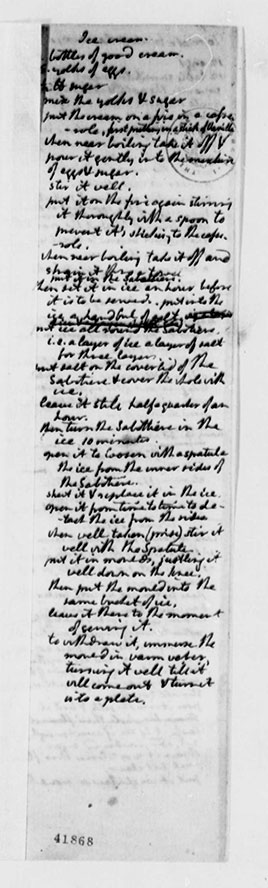 Ice cream.
bottles of good cream.
yolks of eggs.
lb sugar
mix the yolks & sugar
put the cream on a fire in a casse-
-role, first putting in a stick of Vanilla.
when near boiling take it off &
pour it gently into the mixture
of eggs & sugar.
stir it well.
put it on the fire again stirring
it thoroughly with a spoon to
prevent it's sticking to the casse-
-role.
when near boiling take it off and
strain it thro' a towel.
put it in the Sabottiere
then set it in ice an hour before
it is to be served. put into the
ice a handful of salt.
put ice all round the Sabottiere
i.e. a layer of ice a layer of salt
for three layers.
put salt on the coverlid of the
Sabotiere & cover the whole with
ice.
leave it still half a quarter of an
hour.
then turn the Sabottiere in the
ice 10 minutes
open it to loosen with a spatula
the ice from the inner sides of
the Sabotiere.
shut it & replace it in the ice.
open it from time to time to de-
-tach the ice from the sides
when well taken (prise) stir it
well with the Spatula.
put it in moulds, justling it
well down on the knee.
then put the mould into the
same bucket of ice.
leave it there to the moment
of serving it.
to withdraw it, immerse the
mould in warm water,
turning it well till it
will come out & turn it
into a plate.
41868